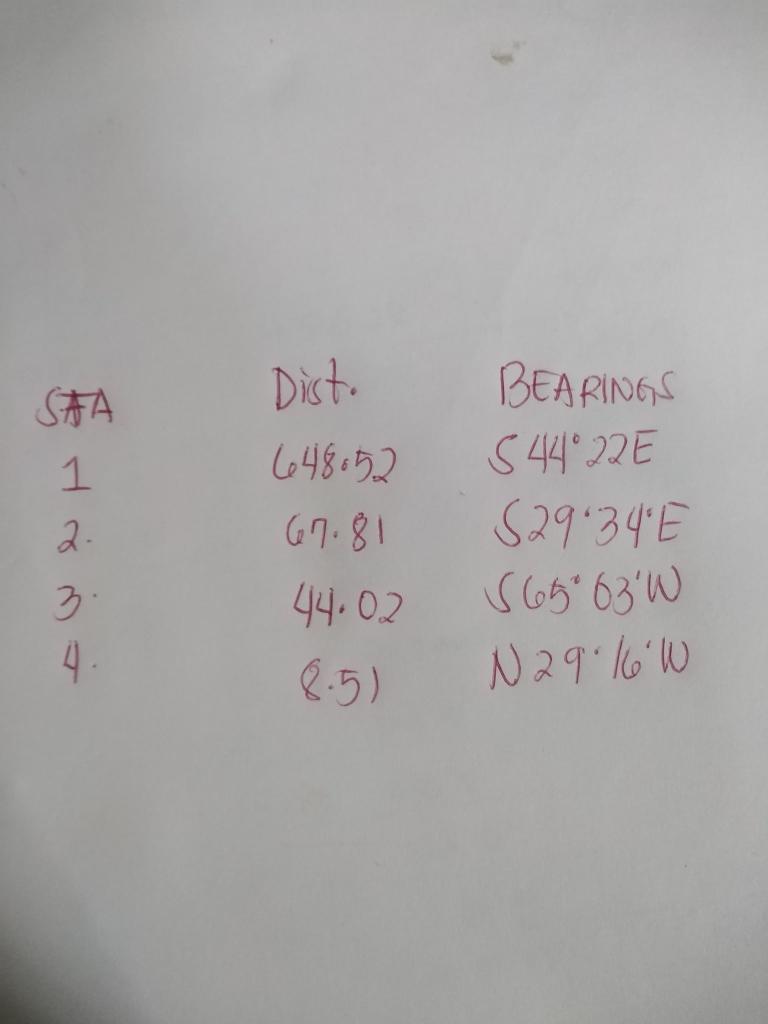 STA Dist. BEARINGS
1 648.52 S 44° 22E
2. 67.81 S29°34'E
3. 44.02 S65° 03'W
4. 8.51 N29°16'W